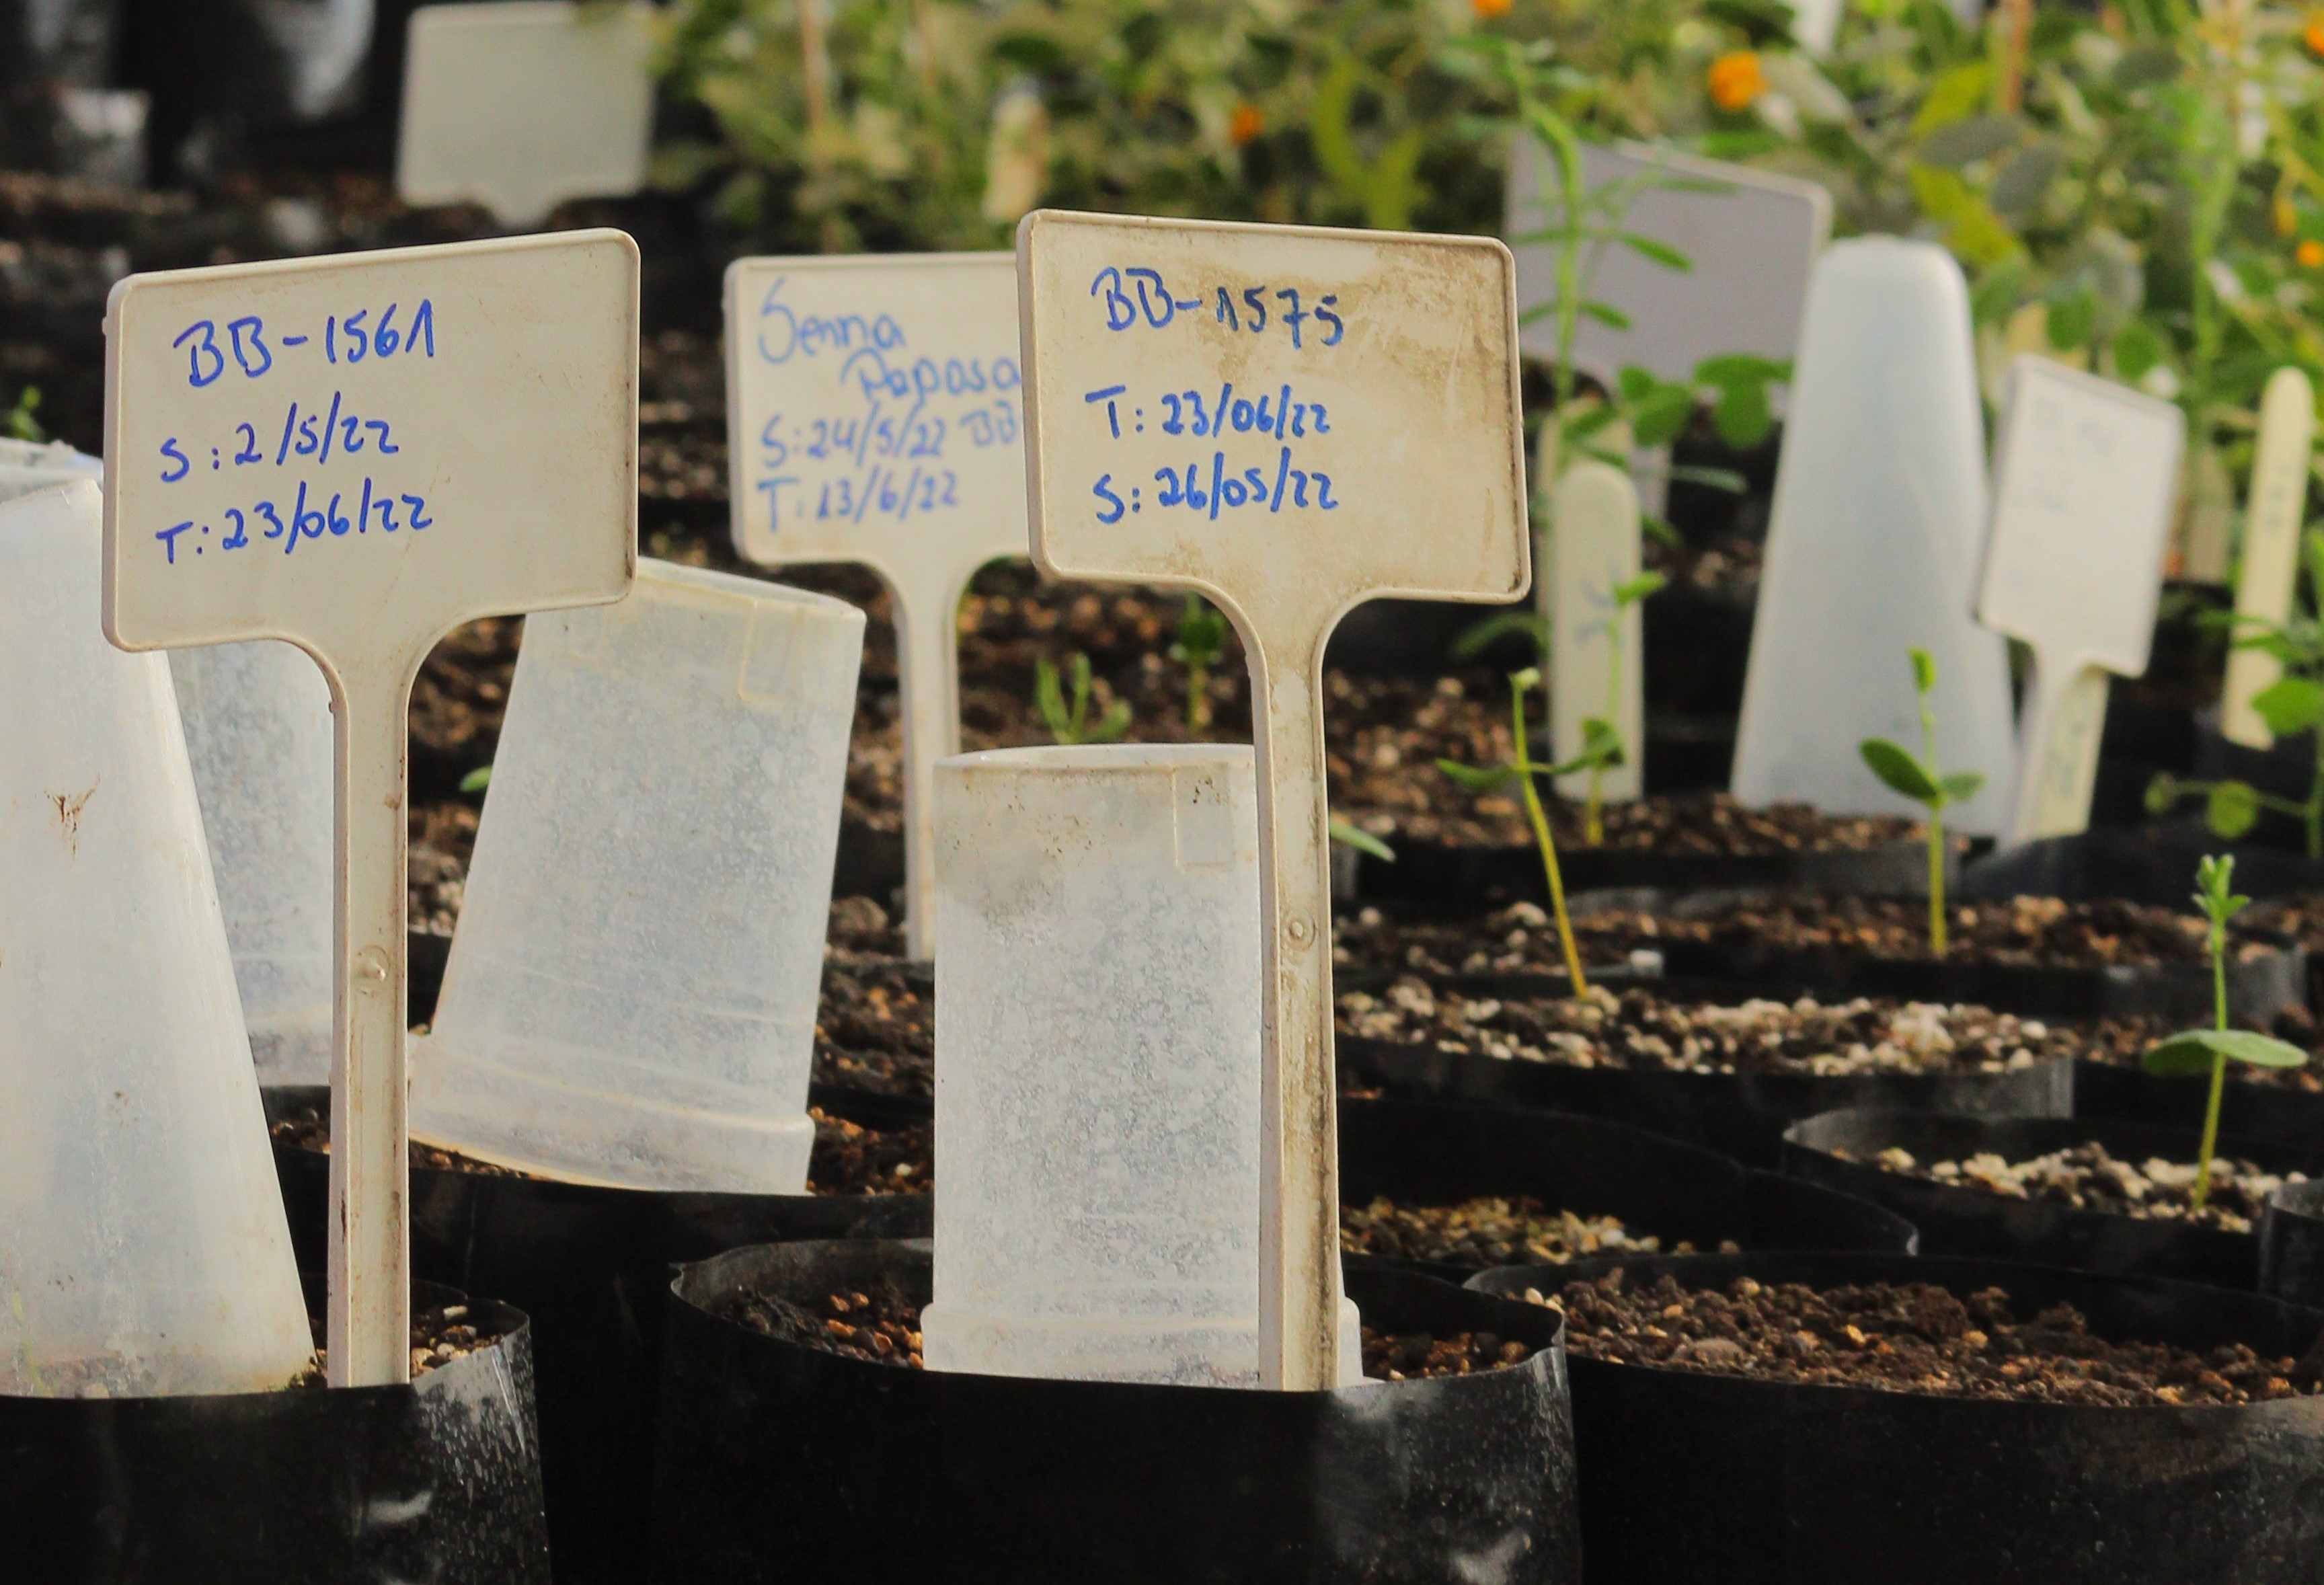 BB-1561
S: 2/5/22
T: 23/06/22
Senna
Paposa
S: 24/5/22 BB
T: 13/6/22
BB-1575
T: 23/06/22
S: 26/05/22